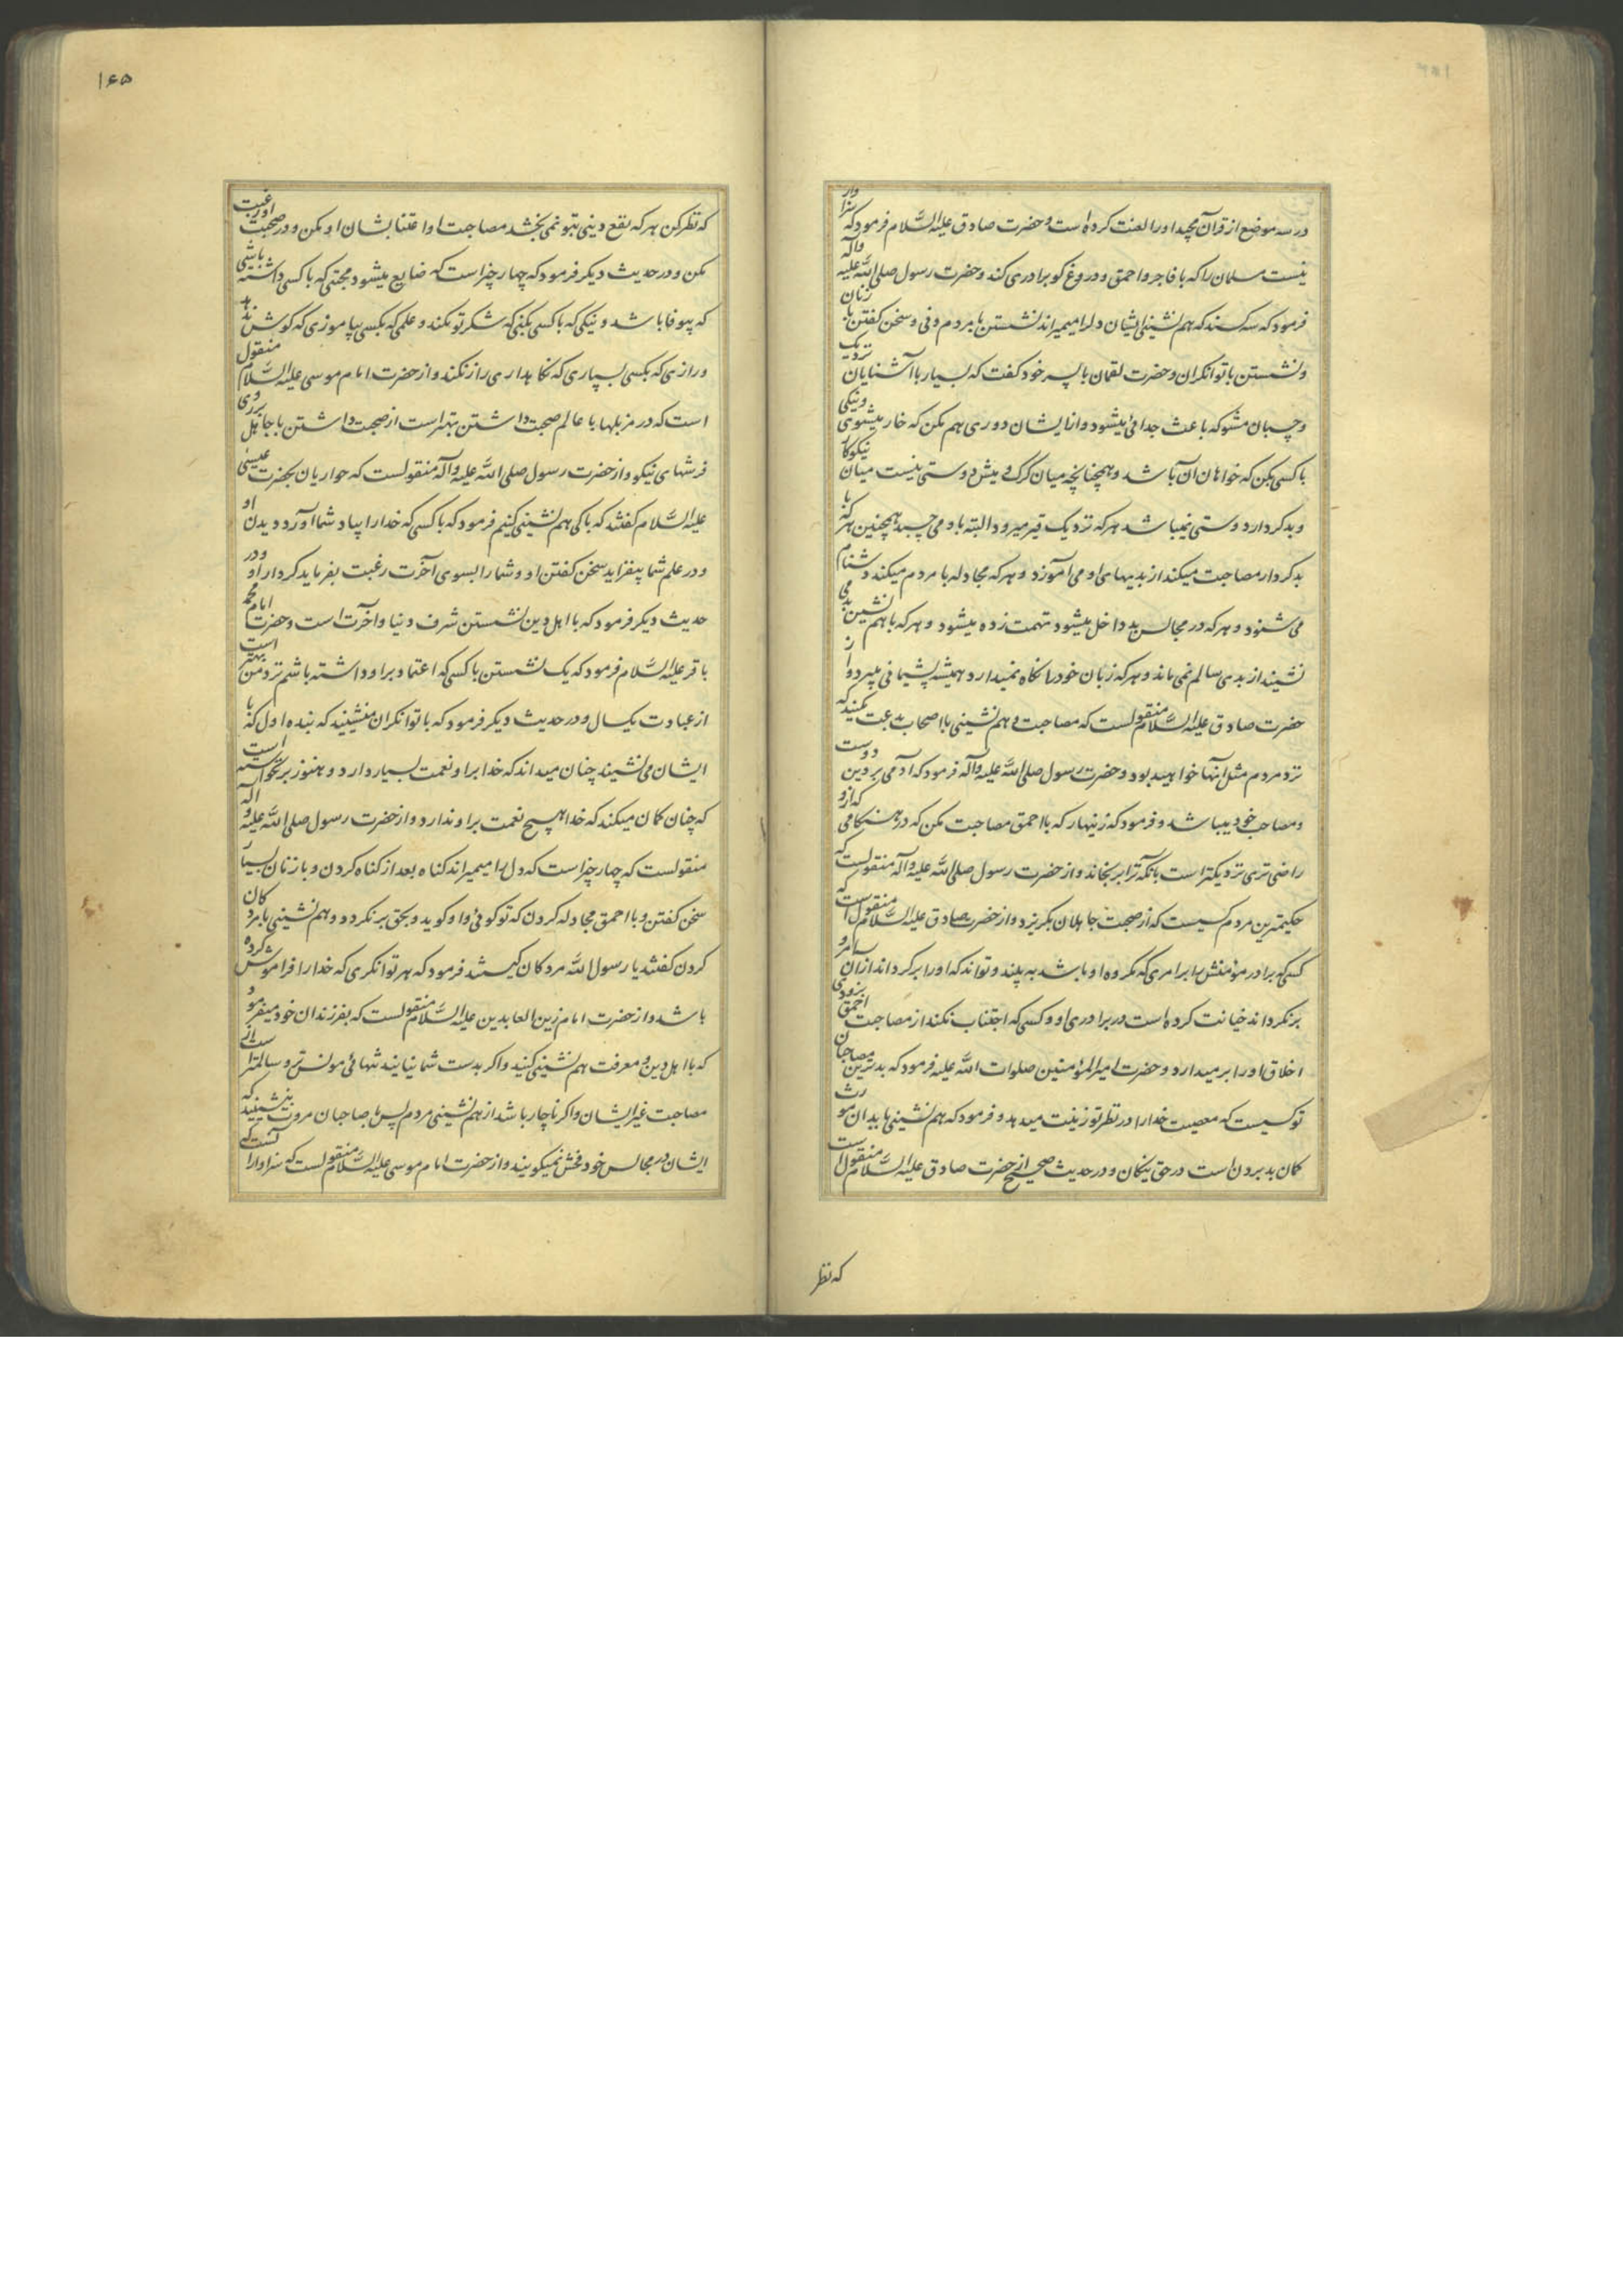 در سه موضع از قرآن مجید او را لعنت کرده است و حضرت صادق علیه السّلام فرمود که سزاوار
نیست مسلمان را که با فاجر و احمق و دروغ کو برادری کند و حضرت رسول صلی اللّه علیه وآله
فرمود که سه کسند که هم نشینی ایشان دلرا میمیراند نشستن با مردم دنی و سخن کفتن با زنان
و نشستن با توانکران و حضرت لقمان با پسر خود کفت که بسیار با آشنایان نزدیک
و چسبان مشو که باعث جدائی میشود و از ایشان دوری هم مکن که خار میشوی و نیکی
با کسی بکن که خواهان آن باشد و همچنانچه میان کرک و میش دوستی نیست میان نیکوکار
و بدکردار دوستی نمیباشد هر که نزدیک قیر میرود البته باو می چسبد همچنین هر که با
بدکردار مصاحبت میکند از بدیهای او می آموزد و هر که مجادله با مردم میکند دشنام
می شنود و هر که در مجالس بد داخل میشود تهمت زده میشود و هر که با هم نشین بد می
نشیند از بدی سالم نمی ماند و هر که زبان خود را نکاه نمیدارد همیشه پشیمانی میبرد و از
حضرت صادق علیه السّلام منقولست که مصاحبت و هم نشینی با اصحاب بدعت مکنید که
نزد مردم مثل آنها خواهید بود و حضرت رسول صلی اللّه علیه وآله فرمود که آدمی بر دین دوست
و مصاحب خود میباشد و فرمود که زینهار که با احمق مصاحبت مکن که در هنکامی که ازو
راضی تری نزدیکتر است بآنکه ترا برنجاند و از حضرت رسول صلی اللّه علیه وآله منقولست که
حکیمترین مردم کسیست که از صحبت جاهلان بکریزد و از حضرت صادق علیه السّلام منقولست که
کسی که برادر مؤمنش را بر امری که مکروه او باشد به بیند و تواند که او را برکرداند از آن امر و
برنکرداند خیانت کرده است در برادری او و کسی که اجتناب نکند از مصاحبت احمق بزودی
اخلاق او را بر میدارد و حضرت امیر المؤمنین صلوات اللّه علیه فرمود که بدترین مصاحبان
تو کسیست که معصیت خدا را در نظر تو زینت میدهد و فرمود که هم نشینی با بدان مورث
کمان بد بردن است در حق نیکان و در حدیث صحیح از حضرت صادق علیه السّلام منقولست
که نظر
۱۶۵
که نظر کن هر که نفع دینی بتو نمی بخشد مصاحبت او اعتنا بشان او مکن و در صحبت او رغبت
مکن و در حدیث دیکر فرمود که چهار چیز است که ضایع میشود محبتی که با کسی داشته باشی
که بیوفا باشد و نیکی که با کسی بکنی که شکر تو نکند و علمی که بکسی بیاموزی که کوش ندهد
و رازی که بکسی بسپاری که نکاهداری راز نکند و از حضرت امام موسی علیه السّلام منقول
است که در مزبلها با عالم صحبت داشتن بهتر است از صحبت داشتن با جاهل بر روی
فرشهای نیکو و از حضرت رسول صلی اللّه علیه وآله منقولست که حواریان بحضرت عیسی
علیه السّلام کفتند که با کی هم نشینی کنیم فرمود که با کسی که خدا را بیاد شما آورد دیدن او
و در علم شما بیفزاید سخن کفتن او و شما را بسوی آخرت رغبت بفرماید کردار او و در
حدیث دیکر فرمود که با اهل دین نشستن شرف دنیا و آخرت است و حضرت امام محمد
باقر علیه السّلام فرمود که یک نشستن با کسی که اعتماد بر او داشته باشم نزد من بهتر است
از عبادت یکسال و در حدیث دیکر فرمود که با توانکران منشینید که بنده اول که با
ایشان می نشیند چنان میداند که خدا بر او نعمت بسیار دارد و هنوز برنخواسته است
که چنان کمان میکند که خدا هیچ نعمت بر او ندارد و از حضرت رسول صلی اللّه علیه وآله
منقولست که چهار چیز است که دل را میمیراند کناه بعد از کناه کردن و با زنان بسیار
سخن کفتن و با احمق مجادله کردن که تو کوئی و او کوید و بحق برنکردد و هم نشینی با مردکان
کردن کفتند یا رسول اللّه مردکان کیستند فرمود که هر توانکری که خدا را فراموش کرده
باشد و از حضرت امام زین العابدین علیه السّلام منقولست که بفرزندان خود میفرمود
که با اهل دین و معرفت هم نشینی کنید و اکر بدست شما نیایند تنهائی مونس تر و سالمتر است از
مصاحبت غیر ایشان و اکر ناچار باشد از هم نشینی مردم پس با صاحبان مروت بنشینید که
ایشان در مجالس خود فحش نمیکویند و از حضرت امام موسی علیه السّلام منقولست که سزاوار